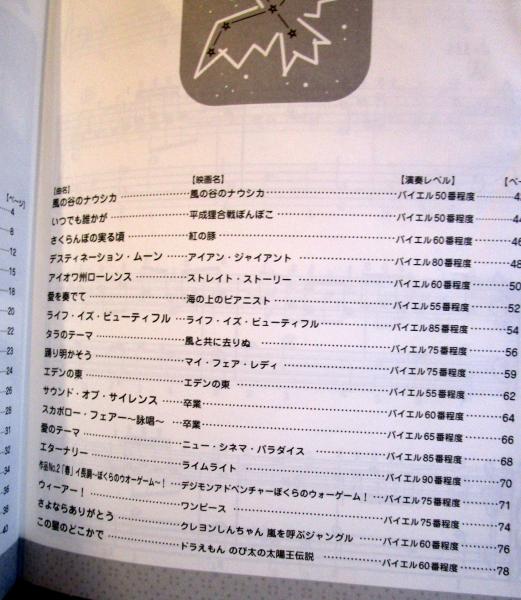 【曲名】 【映画名】 【演奏レベル】 【ペー
風の谷のナウシカ 風の谷のナウシカ バイエル50番程度 4
いつでも誰かが 平成狸合戦ぽんぽこ バイエル50番程度 44
さくらんぼの実る頃 紅の豚 バイエル60番程度 46
デスティネーション・ムーン アイアン・ジャイアント バイエル80番程度 48
アイオワ州ローレンス ストレイト・ストーリー バイエル60番程度 50
愛を奏でて 海の上のピアニスト バイエル55番程度 52
ライフ・イズ・ビューティフル ライフ・イズ・ビューティフル バイエル85番程度 54
タラのテーマ 風と共に去りぬ バイエル75番程度 56
踊り明かそう マイ・フェア・レディ バイエル75番程度 59
エデンの東 エデンの東 バイエル55番程度 62
サウンド・オブ・サイレンス 卒業 バイエル60番程度 64
スカボロー・フェアー〜詠唱〜 卒業 バイエル65番程度 66
愛のテーマ ニュー・シネマ・パラダイス バイエル85番程度 68
エターナリー ライムライト バイエル90番程度 70
作品No.2「春」イ長調〜ぼくらのウオーゲーム〜! デジモンアドベンチャーぼくらのウォーゲーム! バイエル75番程度 71
ウィーアー! ワンピース バイエル75番程度 74
さよならありがとう クレヨンしんちゃん 嵐を呼ぶジャングル バイエル60番程度 76
この星のどこかで ドラえもん のび太の太陽王伝説 バイエル60番程度 78
【ページ】
4
8
12
15
18
20
22
23
24
26
28
31
32
34
36
38
40